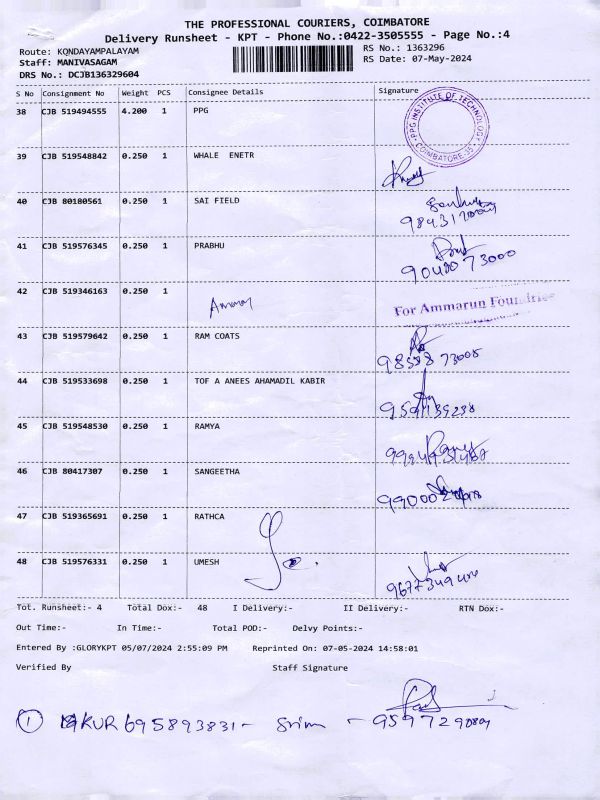 THE PROFESSIONAL COURIERS, COIMBATORE
Delivery Runsheet - KPT - Phone No.:0422-3505555 - Page No.:4
Route: KONDAYAMPALAYAM
RS No.: 1363296
Staff: MANIVASAGAM
RS Date: 07-May-2024
DRS No.: DCJB136329604
S No Consignment No Weight PCS Consignee Details Signature
38 CJB 519494555 4.200 1 PPG
PPG INSTITUTE OF TECHNOLOGY COIMBATORE-35
39 CJB 519548842 0.250 1 WHALE ENETR
40 CJB 80180561 0.250 1 SAI FIELD
41 CJB 519576345 0.250 1 PRABHU
42 CJB 519346163 0.250 1
For Ammarun Foundries
43 CJB 519579642 0.250 1 RAM COATS
44 CJB 519533698 0.250 1 TOF A ANEES AHAMADIL KABIR
45 CJB 519548530 0.250 1 RAMYA
46 CJB 80417307 0.250 1 SANGEETHA
47 CJB 519365691 0.250 1 RATHCA
48 CJB 519576331 0.250 1 UMESH
Tot. Runsheet:- 4 Total Dox:- 48 I Delivery:- II Delivery:- RTN Dox:-
Out Time:- In Time:- Total POD:- Delvy Points:-
Entered By :GLORYKPT 05/07/2024 2:55:09 PM Reprinted On: 07-05-2024 14:58:01
Verified By Staff Signature
1 KUR 695893831 -